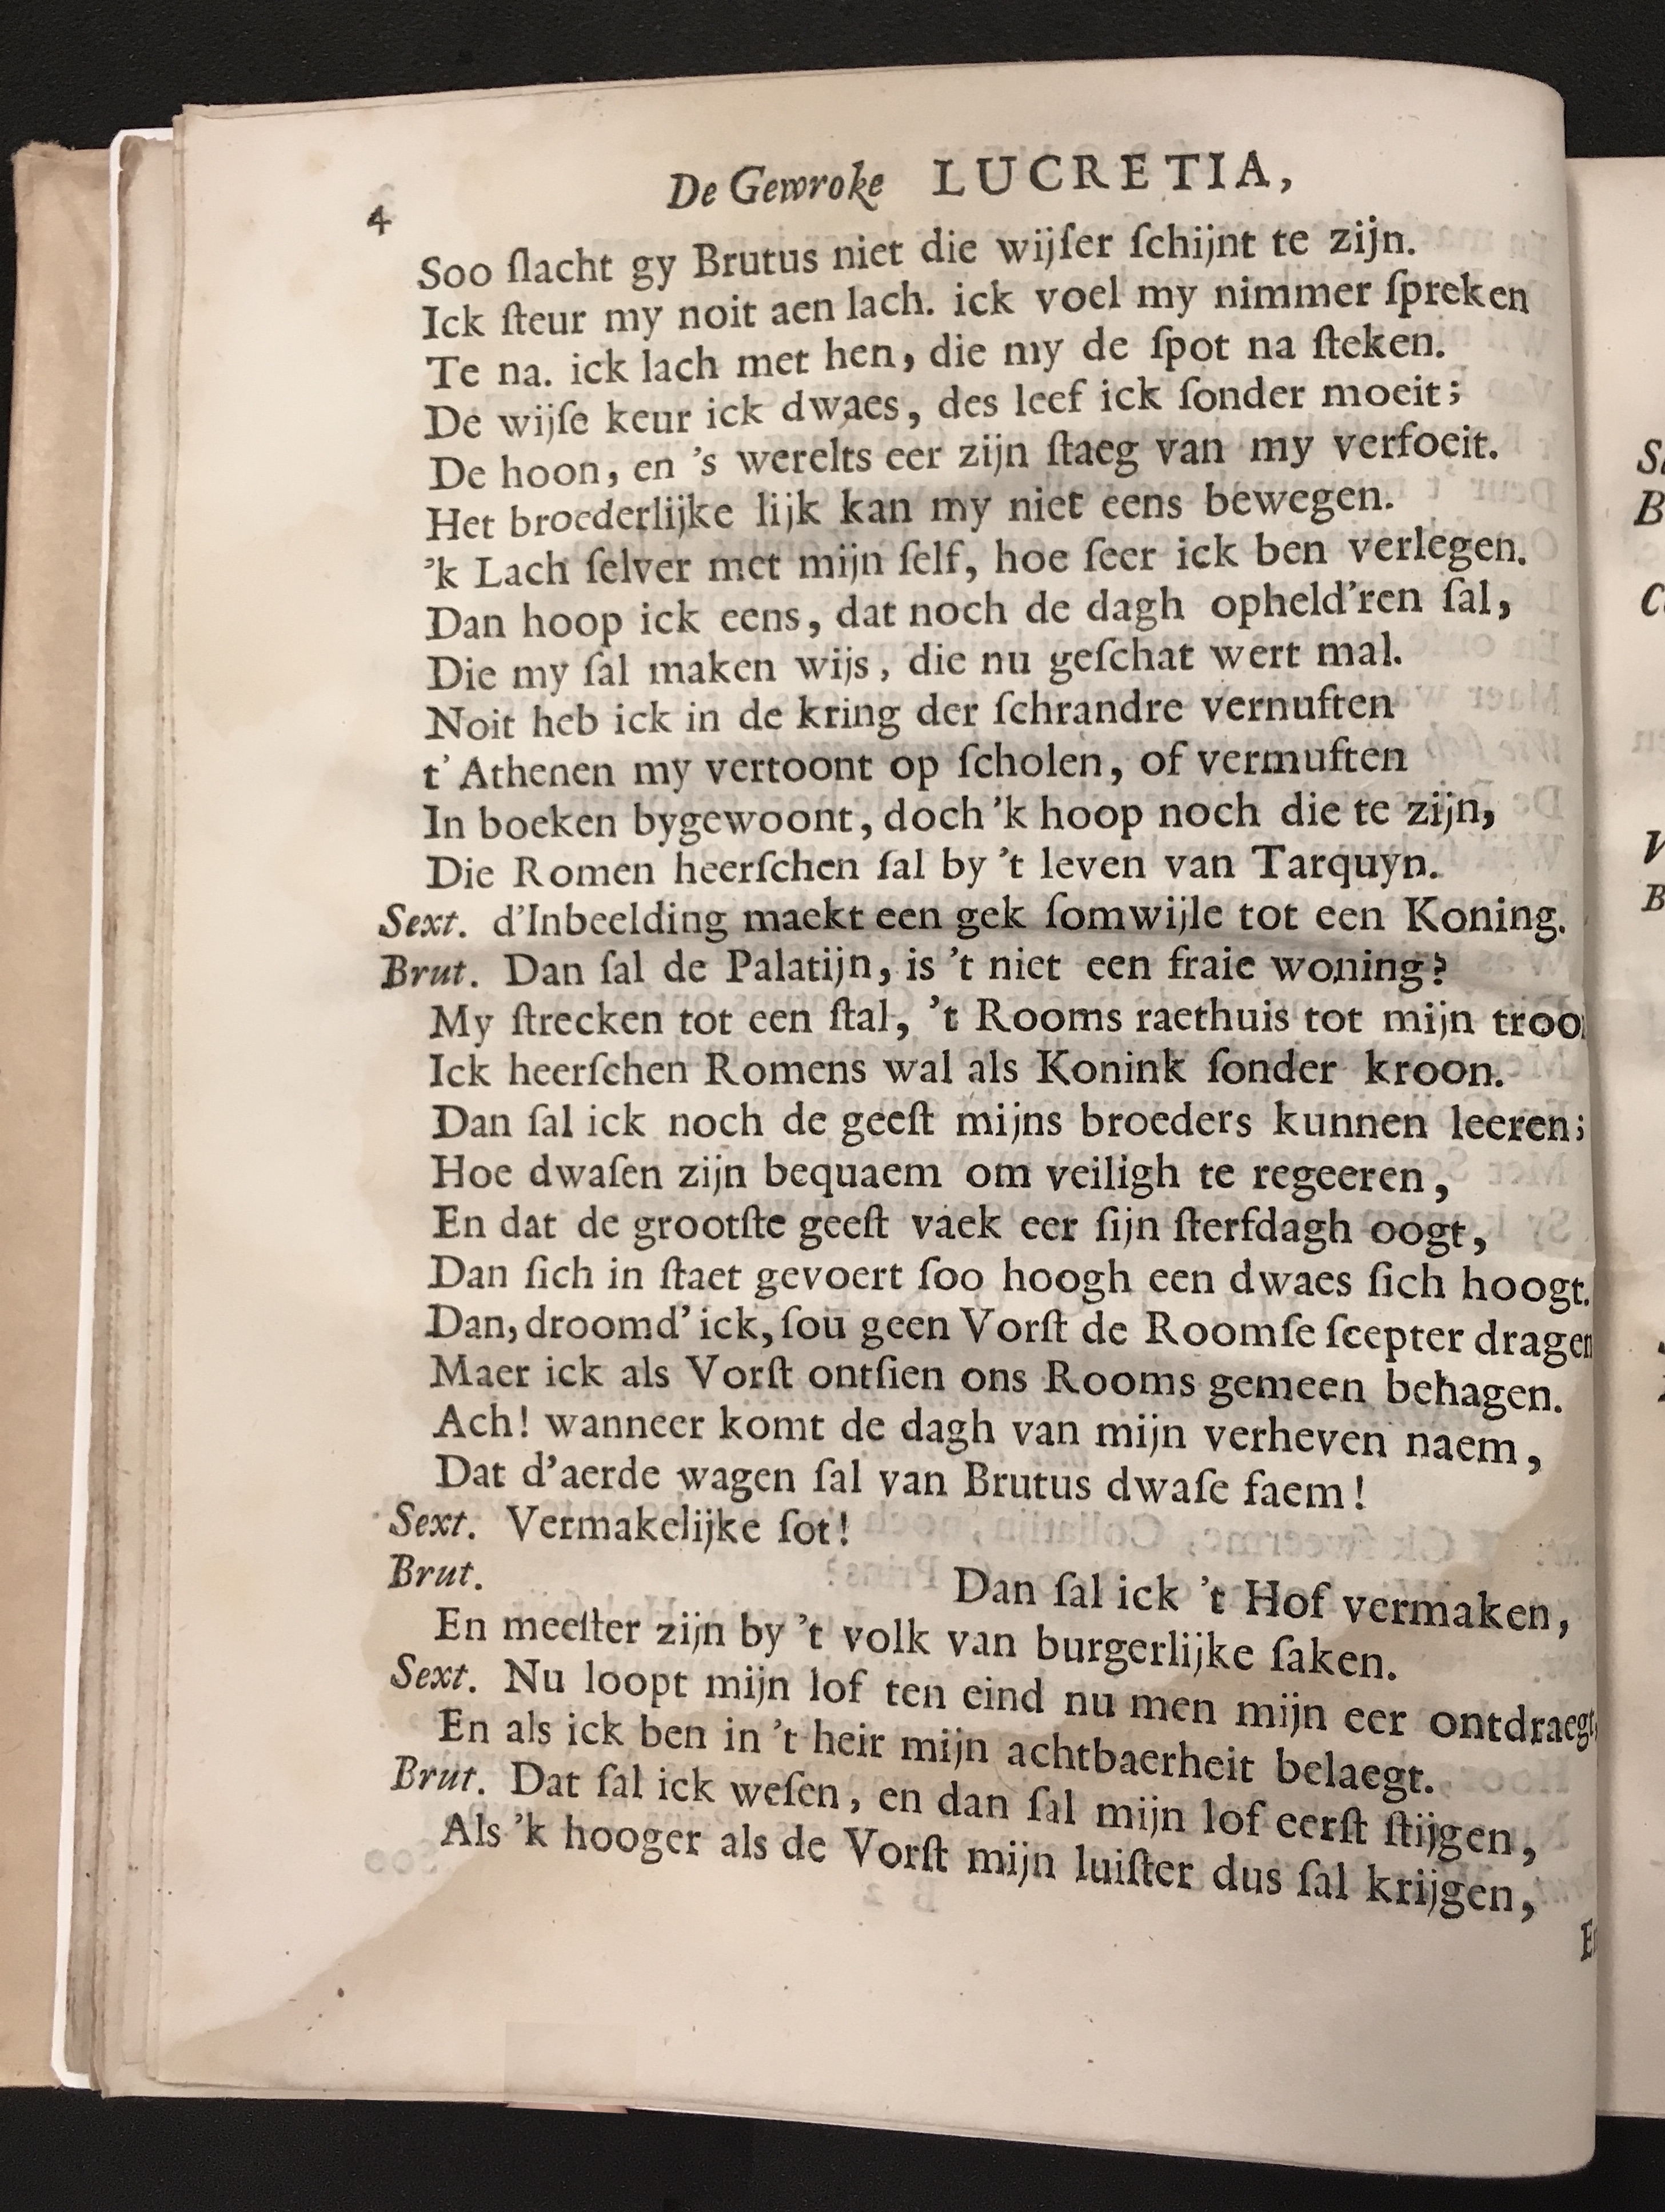 4
De Gewroke LUCRETIA,
Soo ſlacht gy Brutus niet die wijſer ſchijnt te zijn.
Ick ſteur my noit aen lach. ick voel my nimmer ſpreken
Te na. ick lach met hen, die my de ſpot na ſteken.
De wijſe keur ick dwaes, des leef ick ſonder moeit;
De hoon, en 's werelts eer zijn ſtaeg van my verfoeit.
Het broederlijke lijk kan my niet eens bewegen.
'k Lach ſelver met mijn ſelf, hoe ſeer ick ben verlegen.
Dan hoop ick eens, dat noch de dagh opheld'ren ſal,
Die my ſal maken wijs, die nu geſchat wert mal.
Noit heb ick in de kring der ſchrandre vernuften
t' Athenen my vertoont op ſcholen, of vermuften
In boeken bygewoont, doch 'k hoop noch die te zijn,
Die Romen heerſchen ſal by 't leven van Tarquyn.
Sext. d'Inbeelding maekt een gek ſomwijle tot een Koning.
Brut. Dan ſal de Palatijn, is 't niet een fraie woning?
My ſtrecken tot een ſtal, 't Rooms raethuis tot mijn troo
Ick heerſchen Romens wal als Konink ſonder kroon.
Dan ſal ick noch de geeſt mijns broeders kunnen leeren;
Hoe dwaſen zijn bequaem om veiligh te regeeren,
En dat de grootſte geeſt vaek eer ſijn ſterfdagh oogt,
Dan ſich in ſtaet gevoert ſoo hoogh een dwaes ſich hoogt.
Dan, droomd' ick, ſou geen Vorſt de Roomſe ſcepter dragen
Maer ick als Vorſt ontſien ons Rooms gemeen behagen.
Ach! wanneer komt de dagh van mijn verheven naem,
Dat d'aerde wagen ſal van Brutus dwaſe faem!
Sext. Vermakelijke ſot!
Brut. Dan ſal ick 't Hof vermaken,
En meeſter zijn by 't volk van burgerlijke ſaken.
Sext. Nu loopt mijn lof ten eind nu men mijn eer ontdraegt,
En als ick ben in 't heir mijn achtbaerheit belaegt.
Brut. Dat ſal ick weſen, en dan ſal mijn lof eerſt ſtijgen,
Als 'k hooger als de Vorſt mijn luiſter dus ſal krijgen,